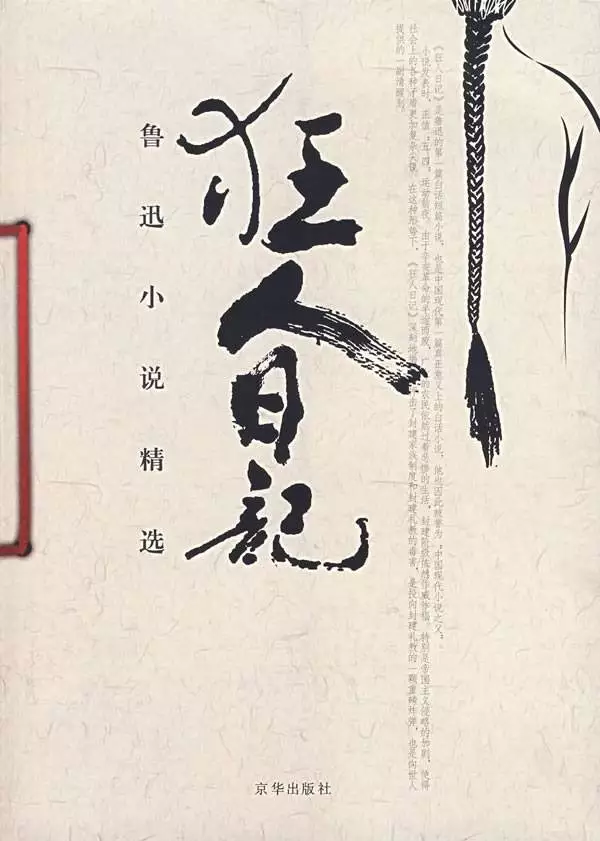 狂人日记
鲁迅小说精选
《狂人日记》是鲁迅的第一篇白话短篇小说，也是中国现代第一篇真正意义上的白话小说，他也因此被誉为“中国现代小说之父”。
小说发表时，正值“五四”运动前夜，由于辛亥革命的半途而废，广的农民依然过着悲惨的生活，封建阶级依然作威作福。特别是帝国主义侵略的加剧，使得
社会上的各种矛盾更加复杂尖锐。在这种形势下，《狂人日记》深刻地出了封建家族制度和封建礼教的毒害，是投向封建礼教的一颗重磅炸弹，也是向世人
提供的一副清醒剂。
京华出版社